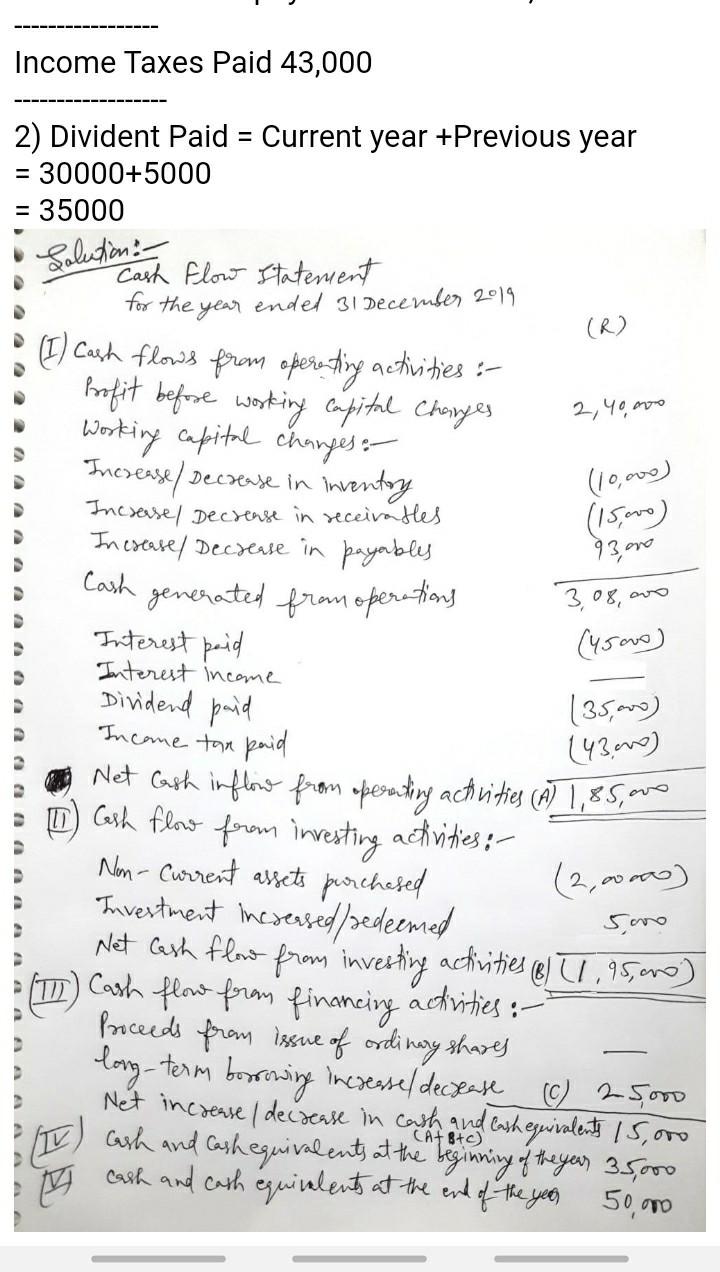 -----------------
Income Taxes Paid 43,000
------------------
2) Divident Paid = Current year +Previous year
= 30000+5000
= 35000
Solution:-
Cash Flow Statement
for the year ended 31 December 2019
(R)
(I) Cash flows from operating activities :-
Profit before working capital changes 2,40,000
Working capital changes:-
Increase/Decrease in inventory (10,000)
Increase/Decrease in receivables (15,000)
Increase/Decrease in payables 93,000
Cash generated from operations 3,08,000
Interest paid (45000)
Interest income —
Dividend paid (35,000)
Income tax paid (43,000)
Net Cash inflow from operating activities (A) 1,85,000
(II) Cash flow from investing activities:-
Non-Current assets purchased (2,00000)
Investment increased/redeemed 5,000
Net Cash flow from investing activities (B) (1,95,000)
(III) Cash flow from financing activities :-
Proceeds from issue of ordinary shares —
long-term borrowing increase/decrease (C) 25,000
Net increase/decrease in cash and Cash equivalents 15,000
(A+B+C)
(IV) Cash and Cash equivalents at the beginning of the year 35,000
(V) cash and cash equivalents at the end of the year 50,000